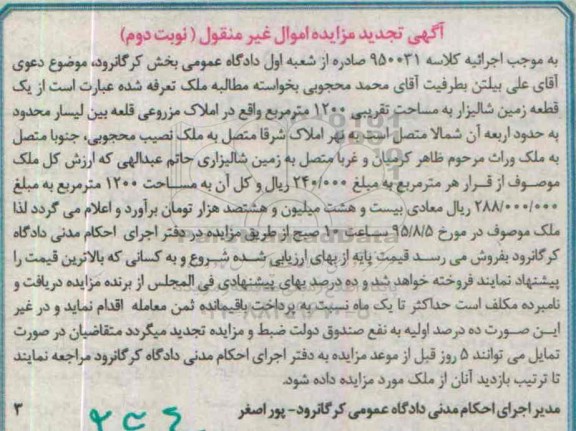 آگهی تجدید مزایده اموال غیر منقول ( نوبت دوم)
به موجب اجرائیه کلاسه ۹۵۰۰۳۱ صادره از شعبه اول دادگاه عمومی بخش کرگانرود، موضوع دعوی
آقای علی بیلتن بطرفیت آقای محمد محجوبی بخواسته مطالبه ملک تعرفه شده عبارت است از یک
قطعه زمین شالیزار به مساحت تقریبی ۱۲۰۰ مترمربع واقع در املاک مزروعی قلعه بین لیسار محدود
به حدود اربعه آن شمالا متصل است به نهر املاک شرقا متصل به ملک نصیب محجوبی، جنوبا متصل
به ملک وراث مرحوم ظاهر کرمیان و غربا متصل به زمین شالیزاری حاتم عبدالهی که ارزش کل ملک
موصوف از قرار هر مترمربع به مبلغ ۲۴۰/۰۰۰ ریال و کل آن به مساحت ۱۲۰۰ مترمربع به مبلغ
۲۸۸/۰۰۰/۰۰۰ ریال معادی بیست و هشت میلیون و هشتصد هزار تومان برآورد و اعلام می گردد لذا
ملک موصوف در مورخ ۹۵/۸/۵ ساعت ۱۰ صبح از طریق مزایده در دفتر اجرای احکام مدنی دادگاه
کرگانرود بفروش می رسد قیمت پایه از بهای ارزیابی شده شروع و به کسانی که بالاترین قیمت را
پیشنهاد نمایند فروخته خواهد شد و ده درصد بهای پیشنهادی فی المجلس از برنده مزایده دریافت و
نامبرده مکلف است حداکثر تا یک ماه نسبت به پرداخت باقیمانده ثمن معامله اقدام نماید و در غیر
این صورت ده درصد اولیه به نفع صندوق دولت ضبط و مزایده تجدید میگردد متقاضیان در صورت
تمایل می توانند ۵ روز قبل از موعد مزایده به دفتر اجرای احکام مدنی دادگاه کرگانرود مراجعه نمایند
تا ترتیب بازدید آنان از ملک مورد مزایده داده شود.
مدیر اجرای احکام مدنی دادگاه عمومی کرگانرود- پور اصغر ۳